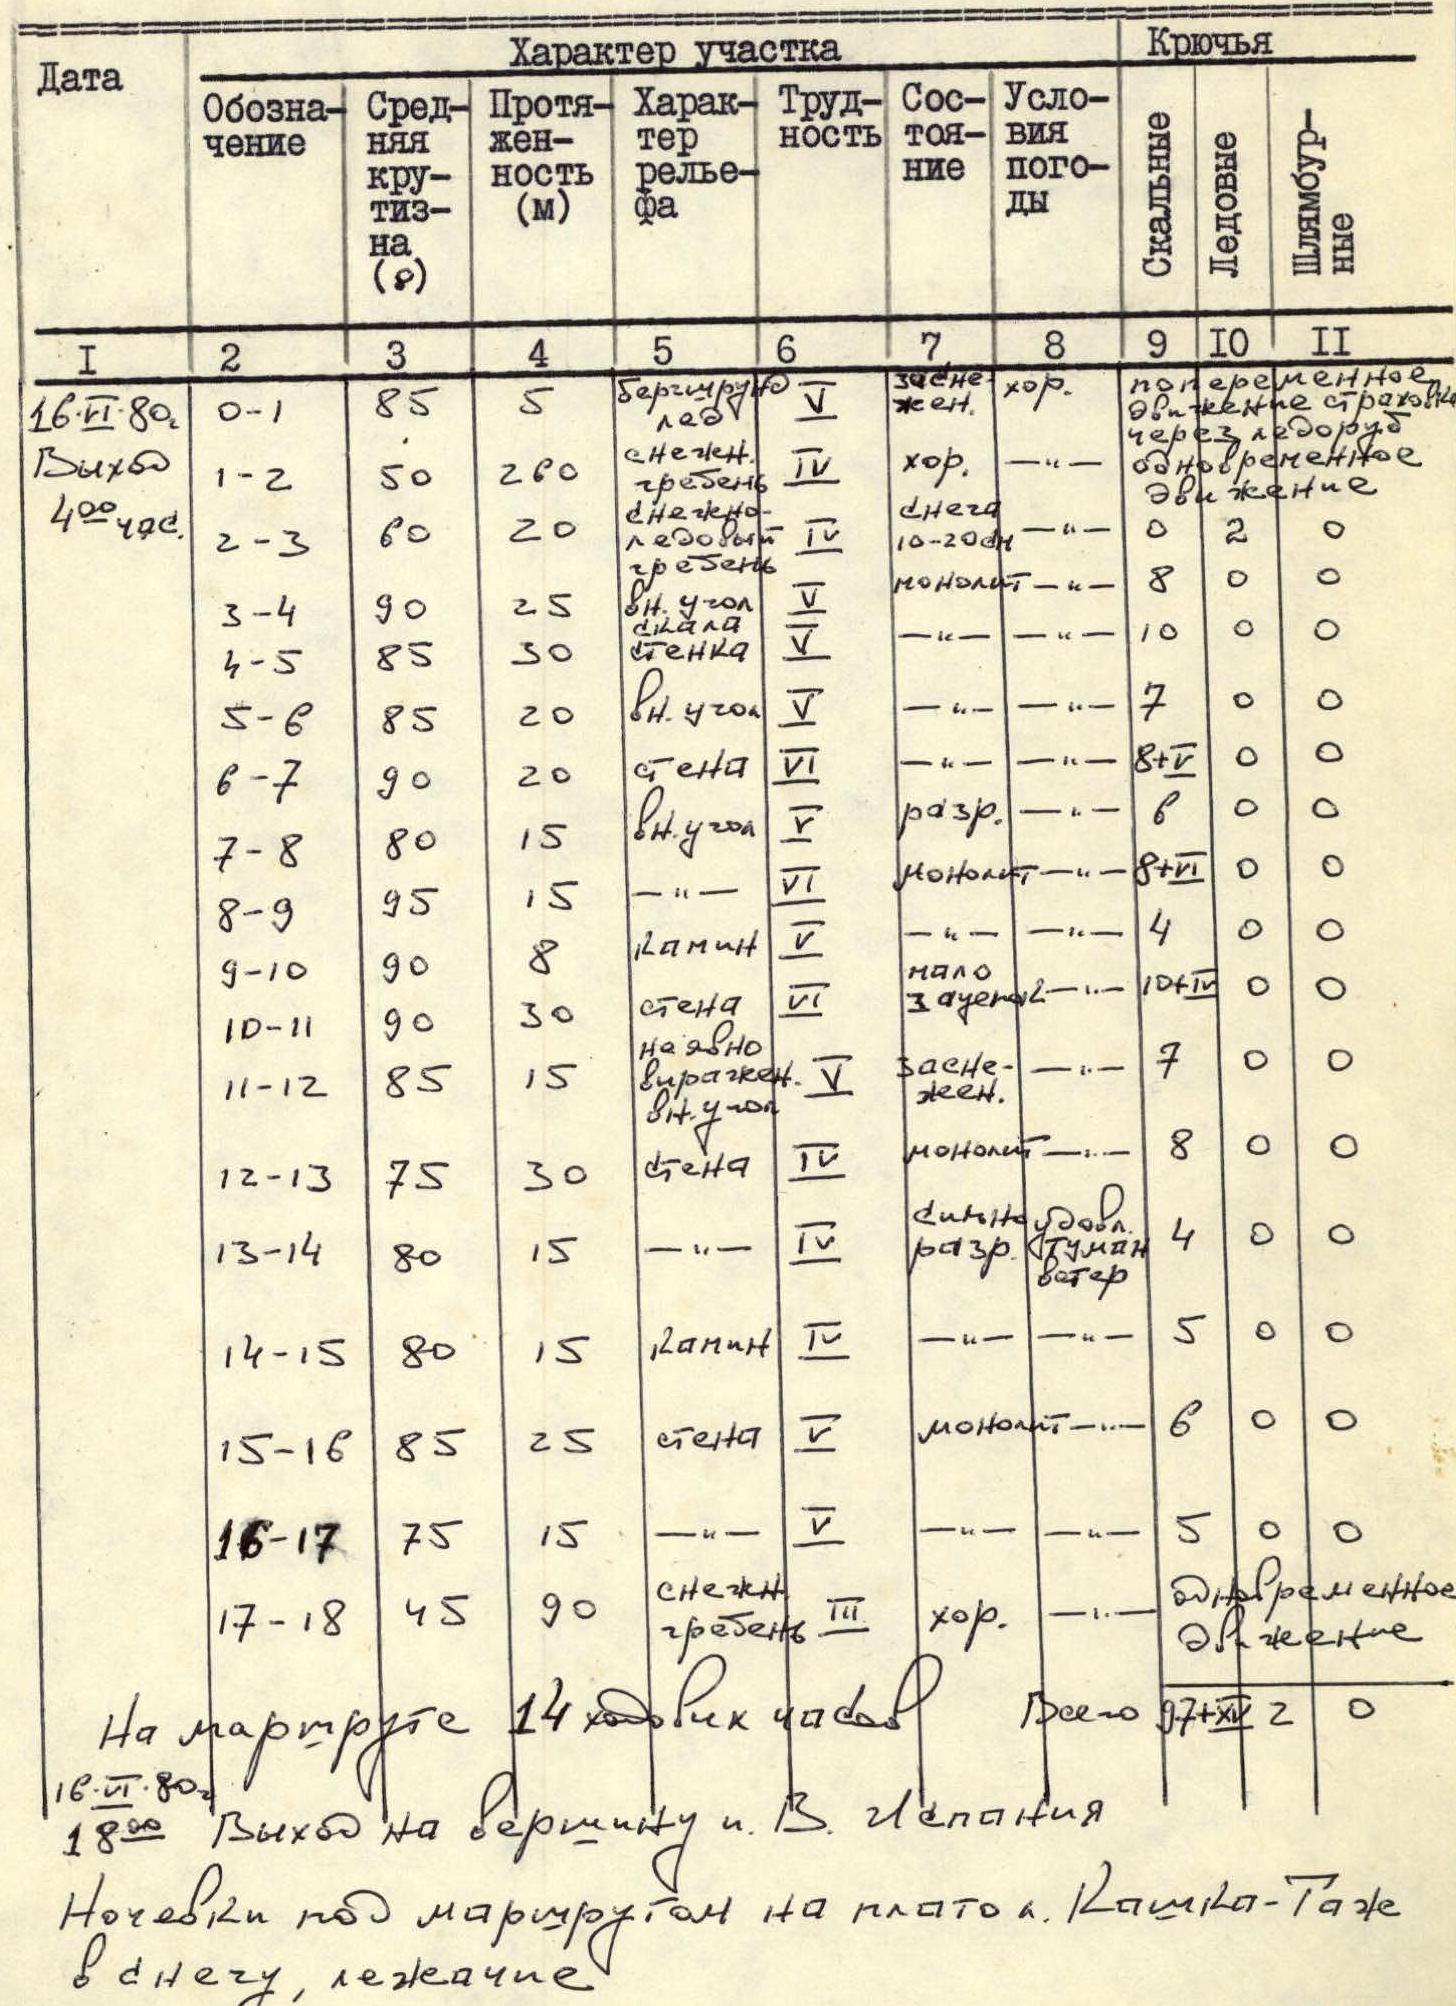 Дата Характер участка Крючья
Обозна-чение Сред-няя кру-тиз-на (°) Протя-жен-ность (м) Харак-тер релье-фа Труд-ность Сос-тоя-ние Усло-вия пого-ды Скальные Ледовые Шлямбур-ные
I 2 3 4 5 6 7 8 9 I0 II
16.VI.80г. 0-1 85 5 бергшрунд лед V засне-жен. хор. попеременное движение страховка через ледоруб
Выход 1-2 50 260 снежн. гребень IV хор. —"— одновременное движение
4⁰⁰ час. 2-3 60 20 снежно-ледовый гребень IV снега 10-20см —"— 0 2 0
3-4 90 25 вн. угол V монолит —"— 8 0 0
4-5 85 30 скала стенка V —"— —"— 10 0 0
5-6 85 20 вн. угол V —"— —"— 7 0 0
6-7 90 20 стена VI —"— —"— 8+V 0 0
7-8 80 15 вн. угол V разр. —"— 6 0 0
8-9 95 15 —"— VI монолит —"— 8+VI 0 0
9-10 90 8 камин V —"— —"— 4 0 0
10-11 90 30 стена VI мало зацепок —"— 10+IV 0 0
11-12 85 15 не явно выражен. вн. угол V засне-жен. —"— 7 0 0
12-13 75 30 стена IV монолит —"— 8 0 0
13-14 80 15 —"— IV сильно разр. удовл. туман ветер 4 0 0
14-15 80 15 камин IV —"— —"— 5 0 0
15-16 85 25 стена V монолит —"— 6 0 0
16-17 75 15 —"— V —"— —"— 5 0 0
17-18 45 90 снежн. гребень III хор. —"— одновременное движение
На маршруте 14 ходовых часов Всего 97+XV 2 0
16.VI.80г
18⁰⁰ Выход на вершину п. В. Испания
Ночевки под маршрутом на плато л. Кашка-Таж
в снегу, лежачие